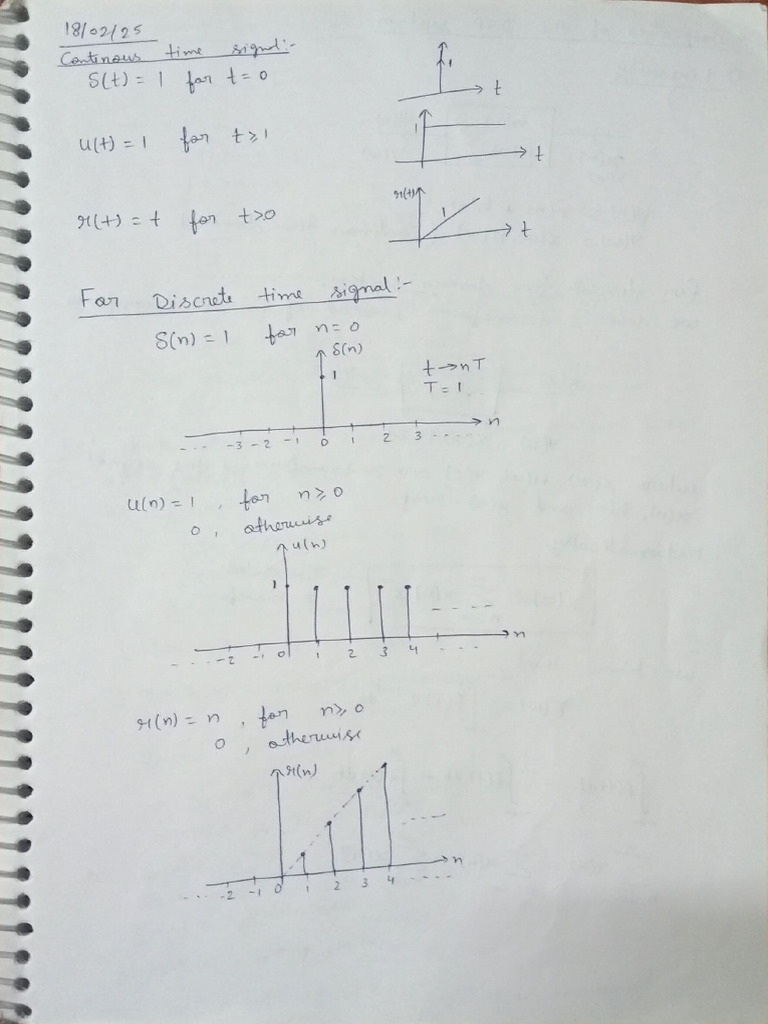 18/02/25
Continous time signal:-
δ(t) = 1 for t = 0
1
t
u(t) = 1 for t ≥ 1
1
t
r(t) = t for t>0
r(t)
1
t
For Discrete time signal:-
δ(n) = 1 for n = 0
δ(n)
1
t → nT
T = 1
n
... -3 -2 -1 0 1 2 3 .....
u(n) = 1 , for n ≥ 0
0 , otherwise
u(n)
1
----
n
.... -2 -1 0 1 2 3 4 ....
r(n) = n , for n ≥ 0
0 , otherwise
r(n)
----
n
.... -2 -1 0 1 2 3 4 ....